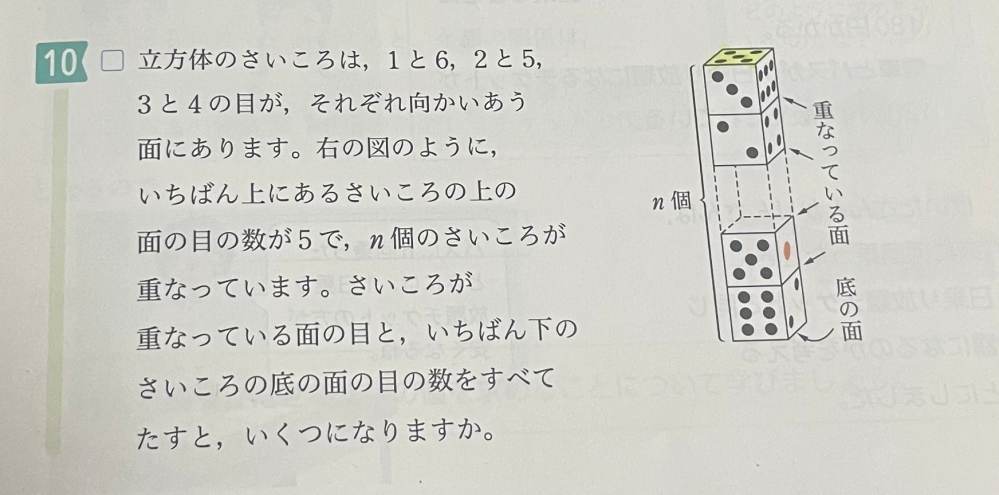 10 立方体のさいころは,1と6,2と5,
3と4の目が,それぞれ向かいあう
面にあります。右の図のように,
いちばん上にあるさいころの上の
面の目の数が5で,n個のさいころが
重なっています。さいころが
重なっている面の目と,いちばん下の
さいころの底の面の目の数をすべて
たすと,いくつになりますか。
n個
重なっている面
底の面